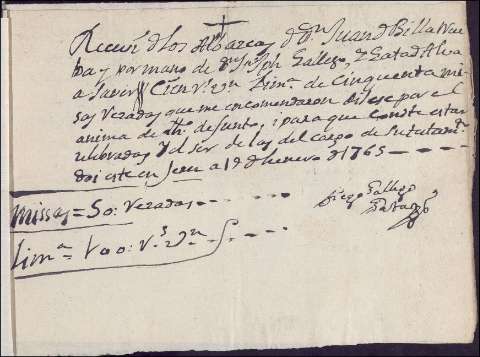 Receui d los Albazeas d Dn Juan d Billa Nue
ba, y por mano de Dn Jph Gallego,
a saver Cien Rs vn Limna de Cinquenta mi
sas Rezadas que me encomendaron dixese por el
anima de dho defunto, i para que conste estar
zelebradas y el ser de las del cargo de su testamto
doi este en a 19 d henero d 1765
Missas = 50: Rezadas
Limna 100: Rs vn
Diego Gallego